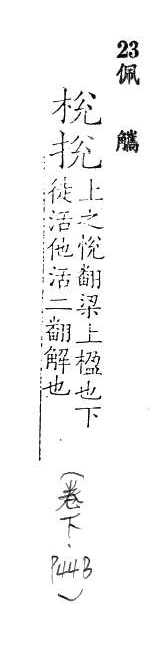 23佩觿
梲挩上之悅翻梁上楹也下
徒活他活二翻解也
(卷下.P44B)